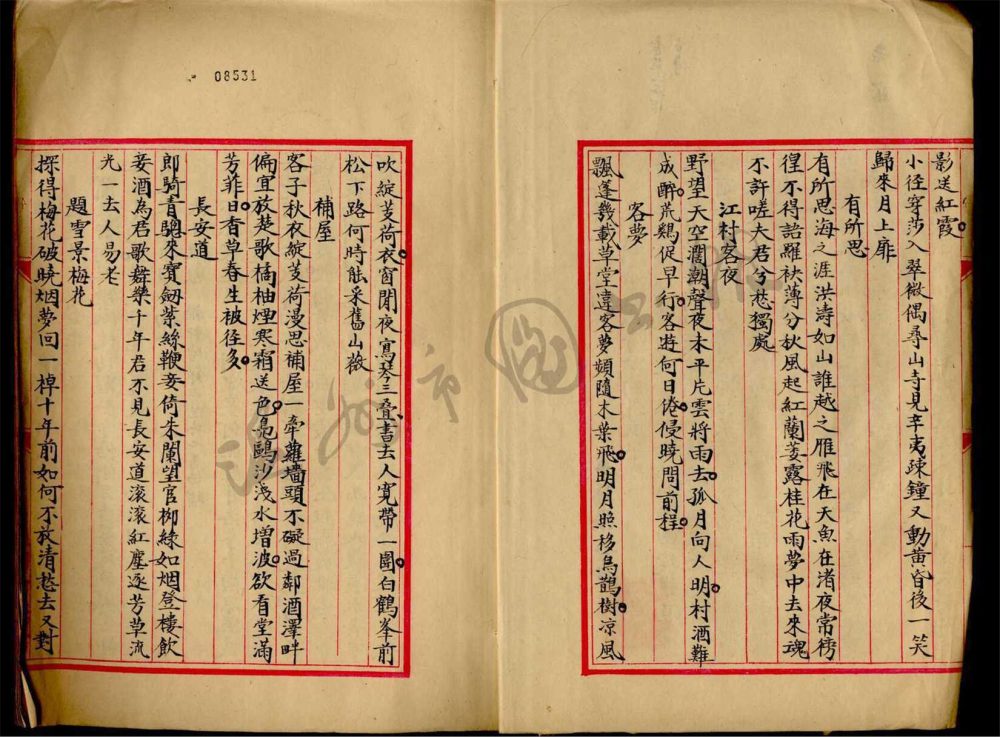 影送紅霞
小径穿莎入翠微偶尋山寺見辛夷疎鐘又動黄昏後一笑
歸來月上扉
有所思
有所思海之涯洪濤如山誰越之雁飛在天魚在渚夜常徬
徨不得詔羅袂薄兮秋風起紅蘭萎露桂花雨夢中去來魂
不許嗟夫君兮愁獨處
江村客夜
野望天空濶潮聲夜本平片雲將雨去孤月向人明村酒難
成醉荒鷄促早行客遊何日倦侵曉問前程
客夢
飄蓬幾載草堂違客夢頻隨木葉飛明月照移烏鵲樹凉風
08531
吹綻芰荷衣窗閒夜寫琴三叠書去人寛帶一圍白鶴峯前
松下路何時能采舊山薇
補屋
客子秋衣綻芰荷漫思補屋一牽蘿墻頭不礙過鄰酒澤畔
偏宜放楚歌橘柚煙寒霜送色鳧鷗沙淺水增波欲看堂滿
芳菲日香草春生被径多
長安道
郎騎青驄來寳劔紫絲鞭妾倚朱闌望官柳綠如烟登樓飲
妾酒為君歌舞樂千年君不見長安道滚滚紅塵逐芳草流
光一去人易老
題雪景梅花
探得梅花破曉烟夢回一棹十年前如何不放清愁去又對